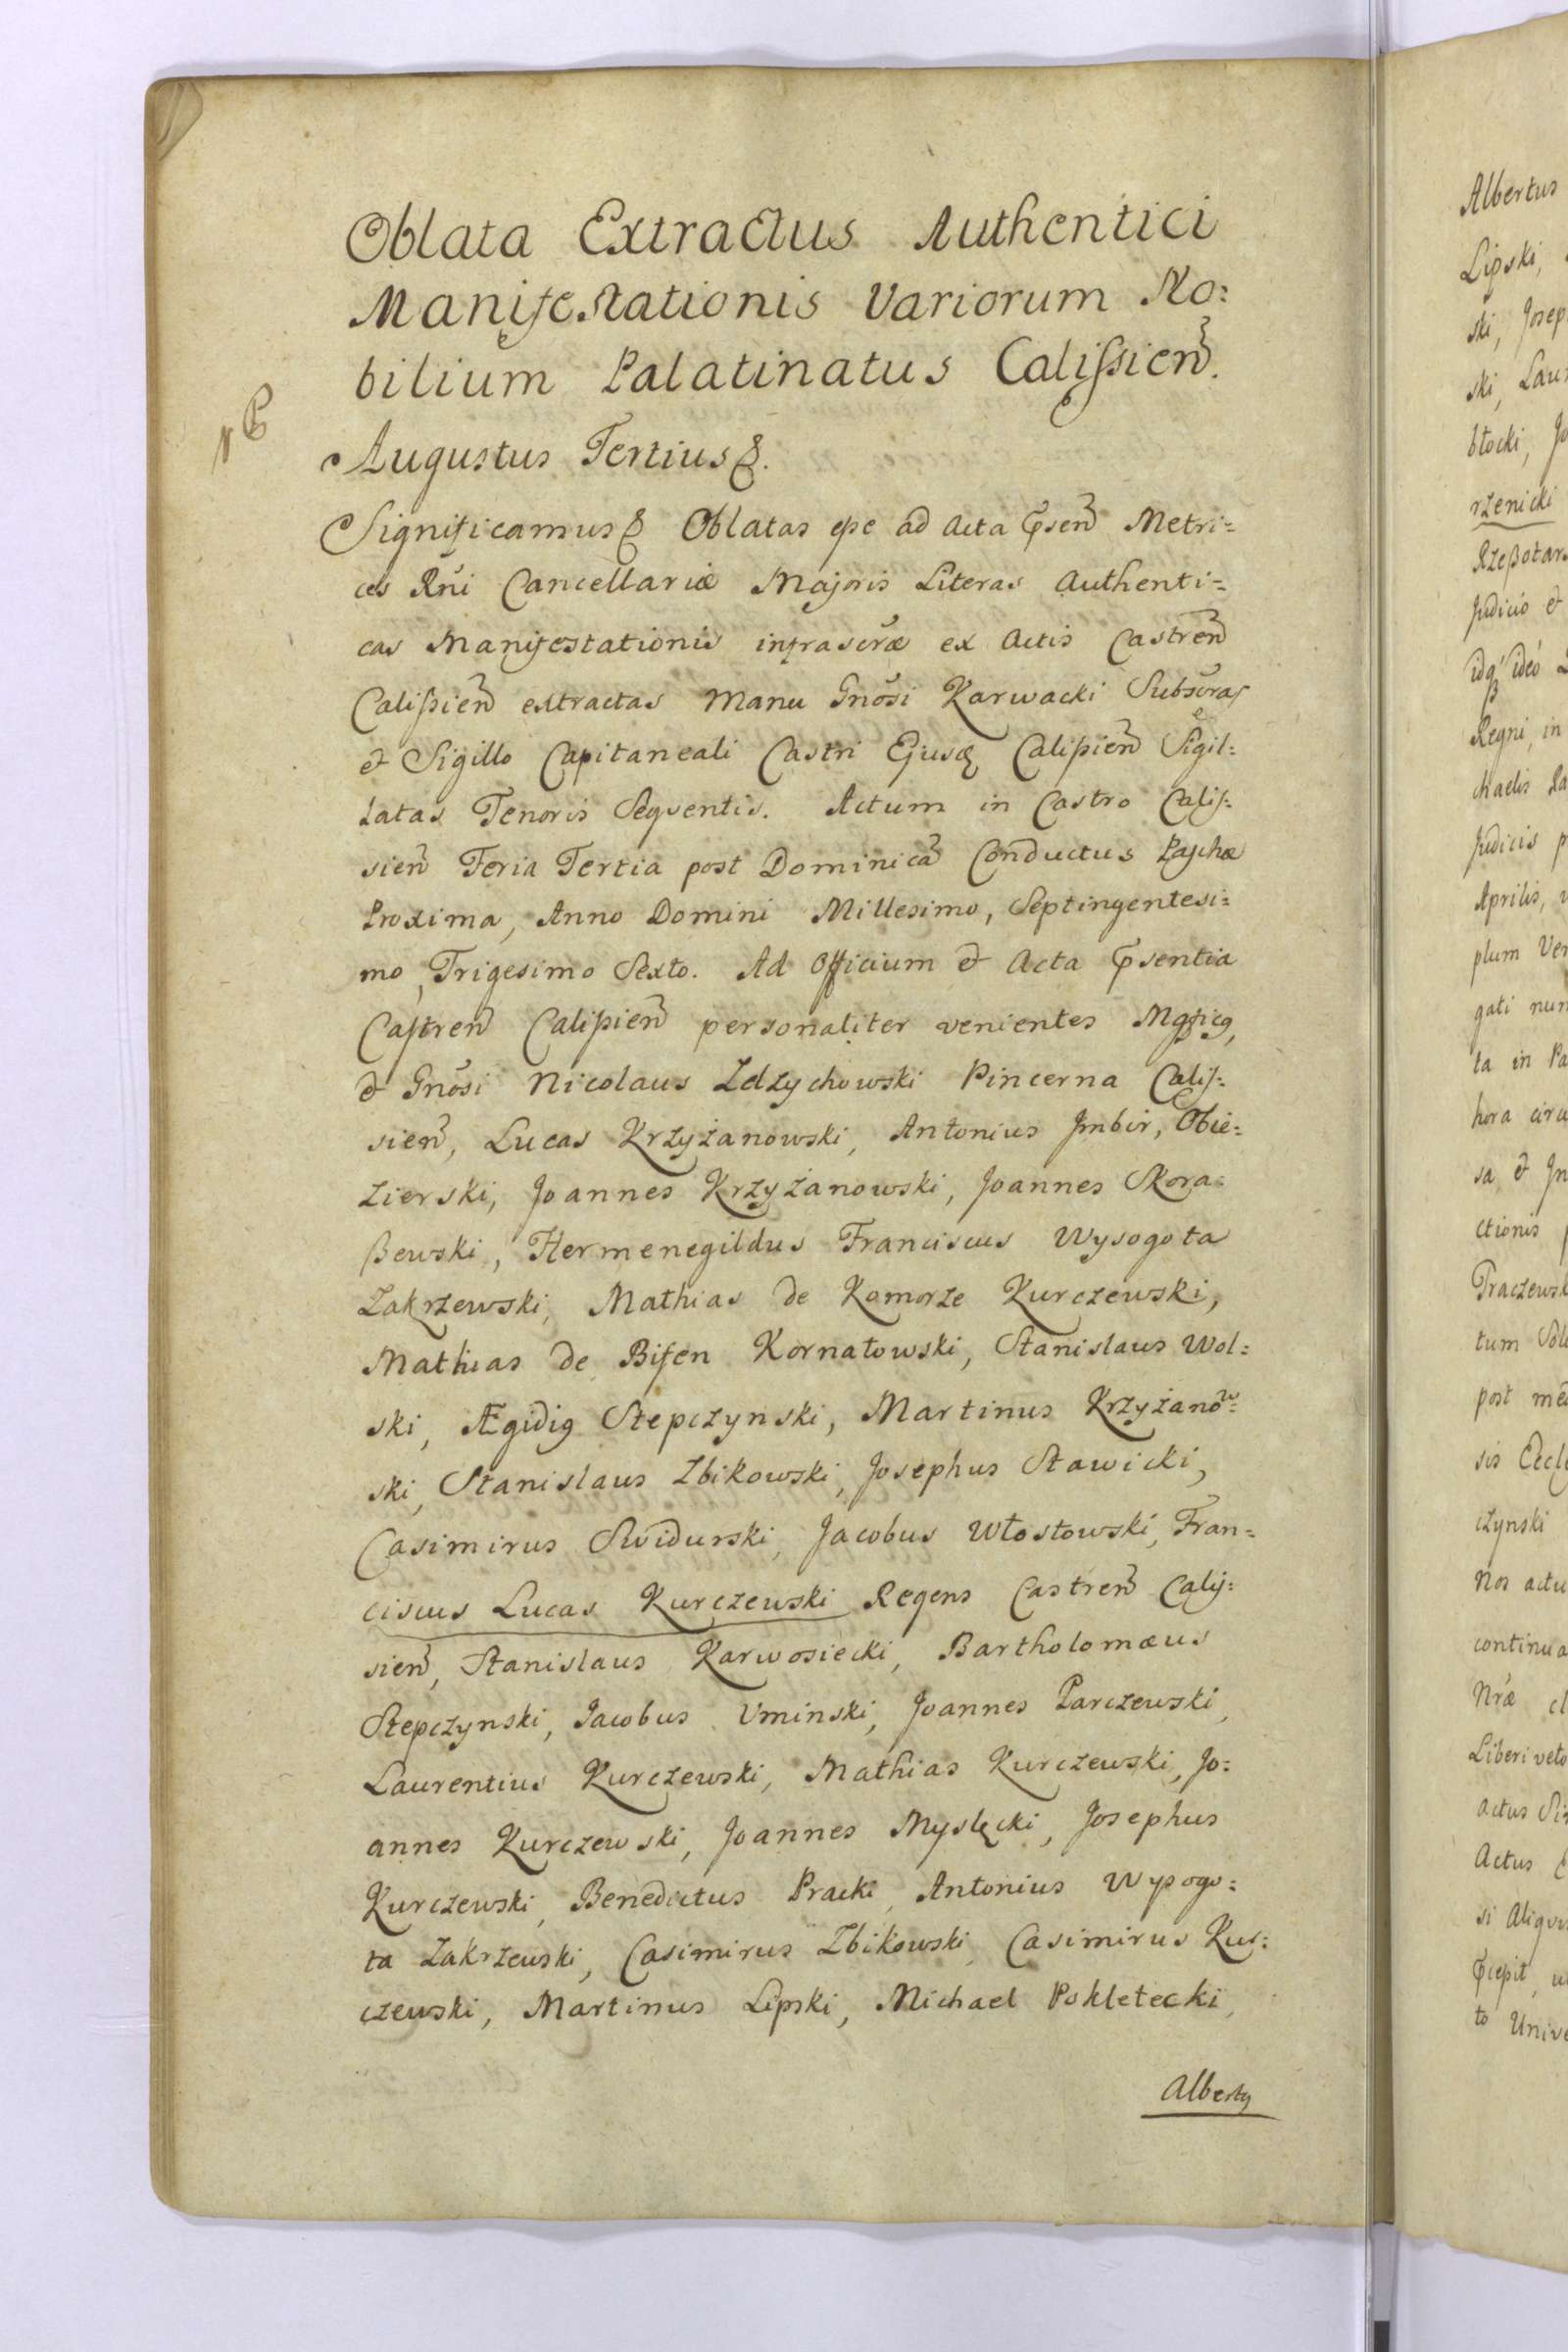 Oblata Extractus Authentici
Manifestationis Variorum No:
bilium Palatinatus Calissień.
NB
Augustus Tertius &.
Significamus & Oblatas esse ad Acta Pñseń Metri=
ces Rñi Cancellariæ Majoris Literas Authenti=
cas Manifestationis infrascræ ex Actis Castreñ
Calißieñ extractas Manu Gnõsi Karwacki Subscras
& Sigillo Capitaneali Castri Ejusq Calißieñ Sigil=
latas Tenoris Sequentis. Actum in Castro Calis=
sieñ Feria Tertia post Dominicã Conductus Paschæ
Proxima, Anno Domini Millesimo, Septingentesi=
mo, Trigesimo Sexto. Ad Officium & Acta Pñsentia
Castreñ Calißieñ personaliter venientes
& Gnõsi Nicolaus Zdzychowski Pincerna Calis=
sieñ, Lucas Krzyżanowski, Antonius Jmbir, Obie=
zierski, Joannes Krzyżanowski, Joannes Skora=
ßewski, Hermenegildus Franciscus Wysogota
Zakrzewski, Mathias de Komorze Kurczewski,
Mathias de Bifen Kornatowski, Stanislaus Wol=
ski, Ægidig Stepczynski, Martinus Krzyżanow=
ski, Stanislaus Zbikowski, Josephus Stawicki,
Casimirus Swidurski, Jacobus Włostowski, Fran=
ciscus Lucas Kurczewski Regens Castreñ Calis=
sieñ, Stanislaus Karwosiecki, Bartholomæus
Stepczynski, Jacobus Uminski, Joannes Parczewski,
Laurentius Kurczewski, Mathias Kurczewski, Jo=
annes Kurczewski, Joannes Myslęcki, Josephus
Kurczewski, Benedictus Pracki, Antonius Wyßogo=
ta Zakrzewski, Casimirus Zbikowski, Casimirus Kur=
czewski, Martinus Lipski, Michael Pokletecki,
Albertg
Albertus
Lipski,
ski, Josep
ski, Laur
błocki, Jo
rzenicki
Judicio &
Regni, in
chaelis Ra
Judiciis p
Aprilis, v
plum Ver
gati nun
ta in Pa
hora circ
sa, & Jn
ctionis p
Praczewsk
post me
sis Eccle
czynski
Nos actu
continua
Nræ cl
Liberi veto
actus
Actus
si Aliqu
to Unive